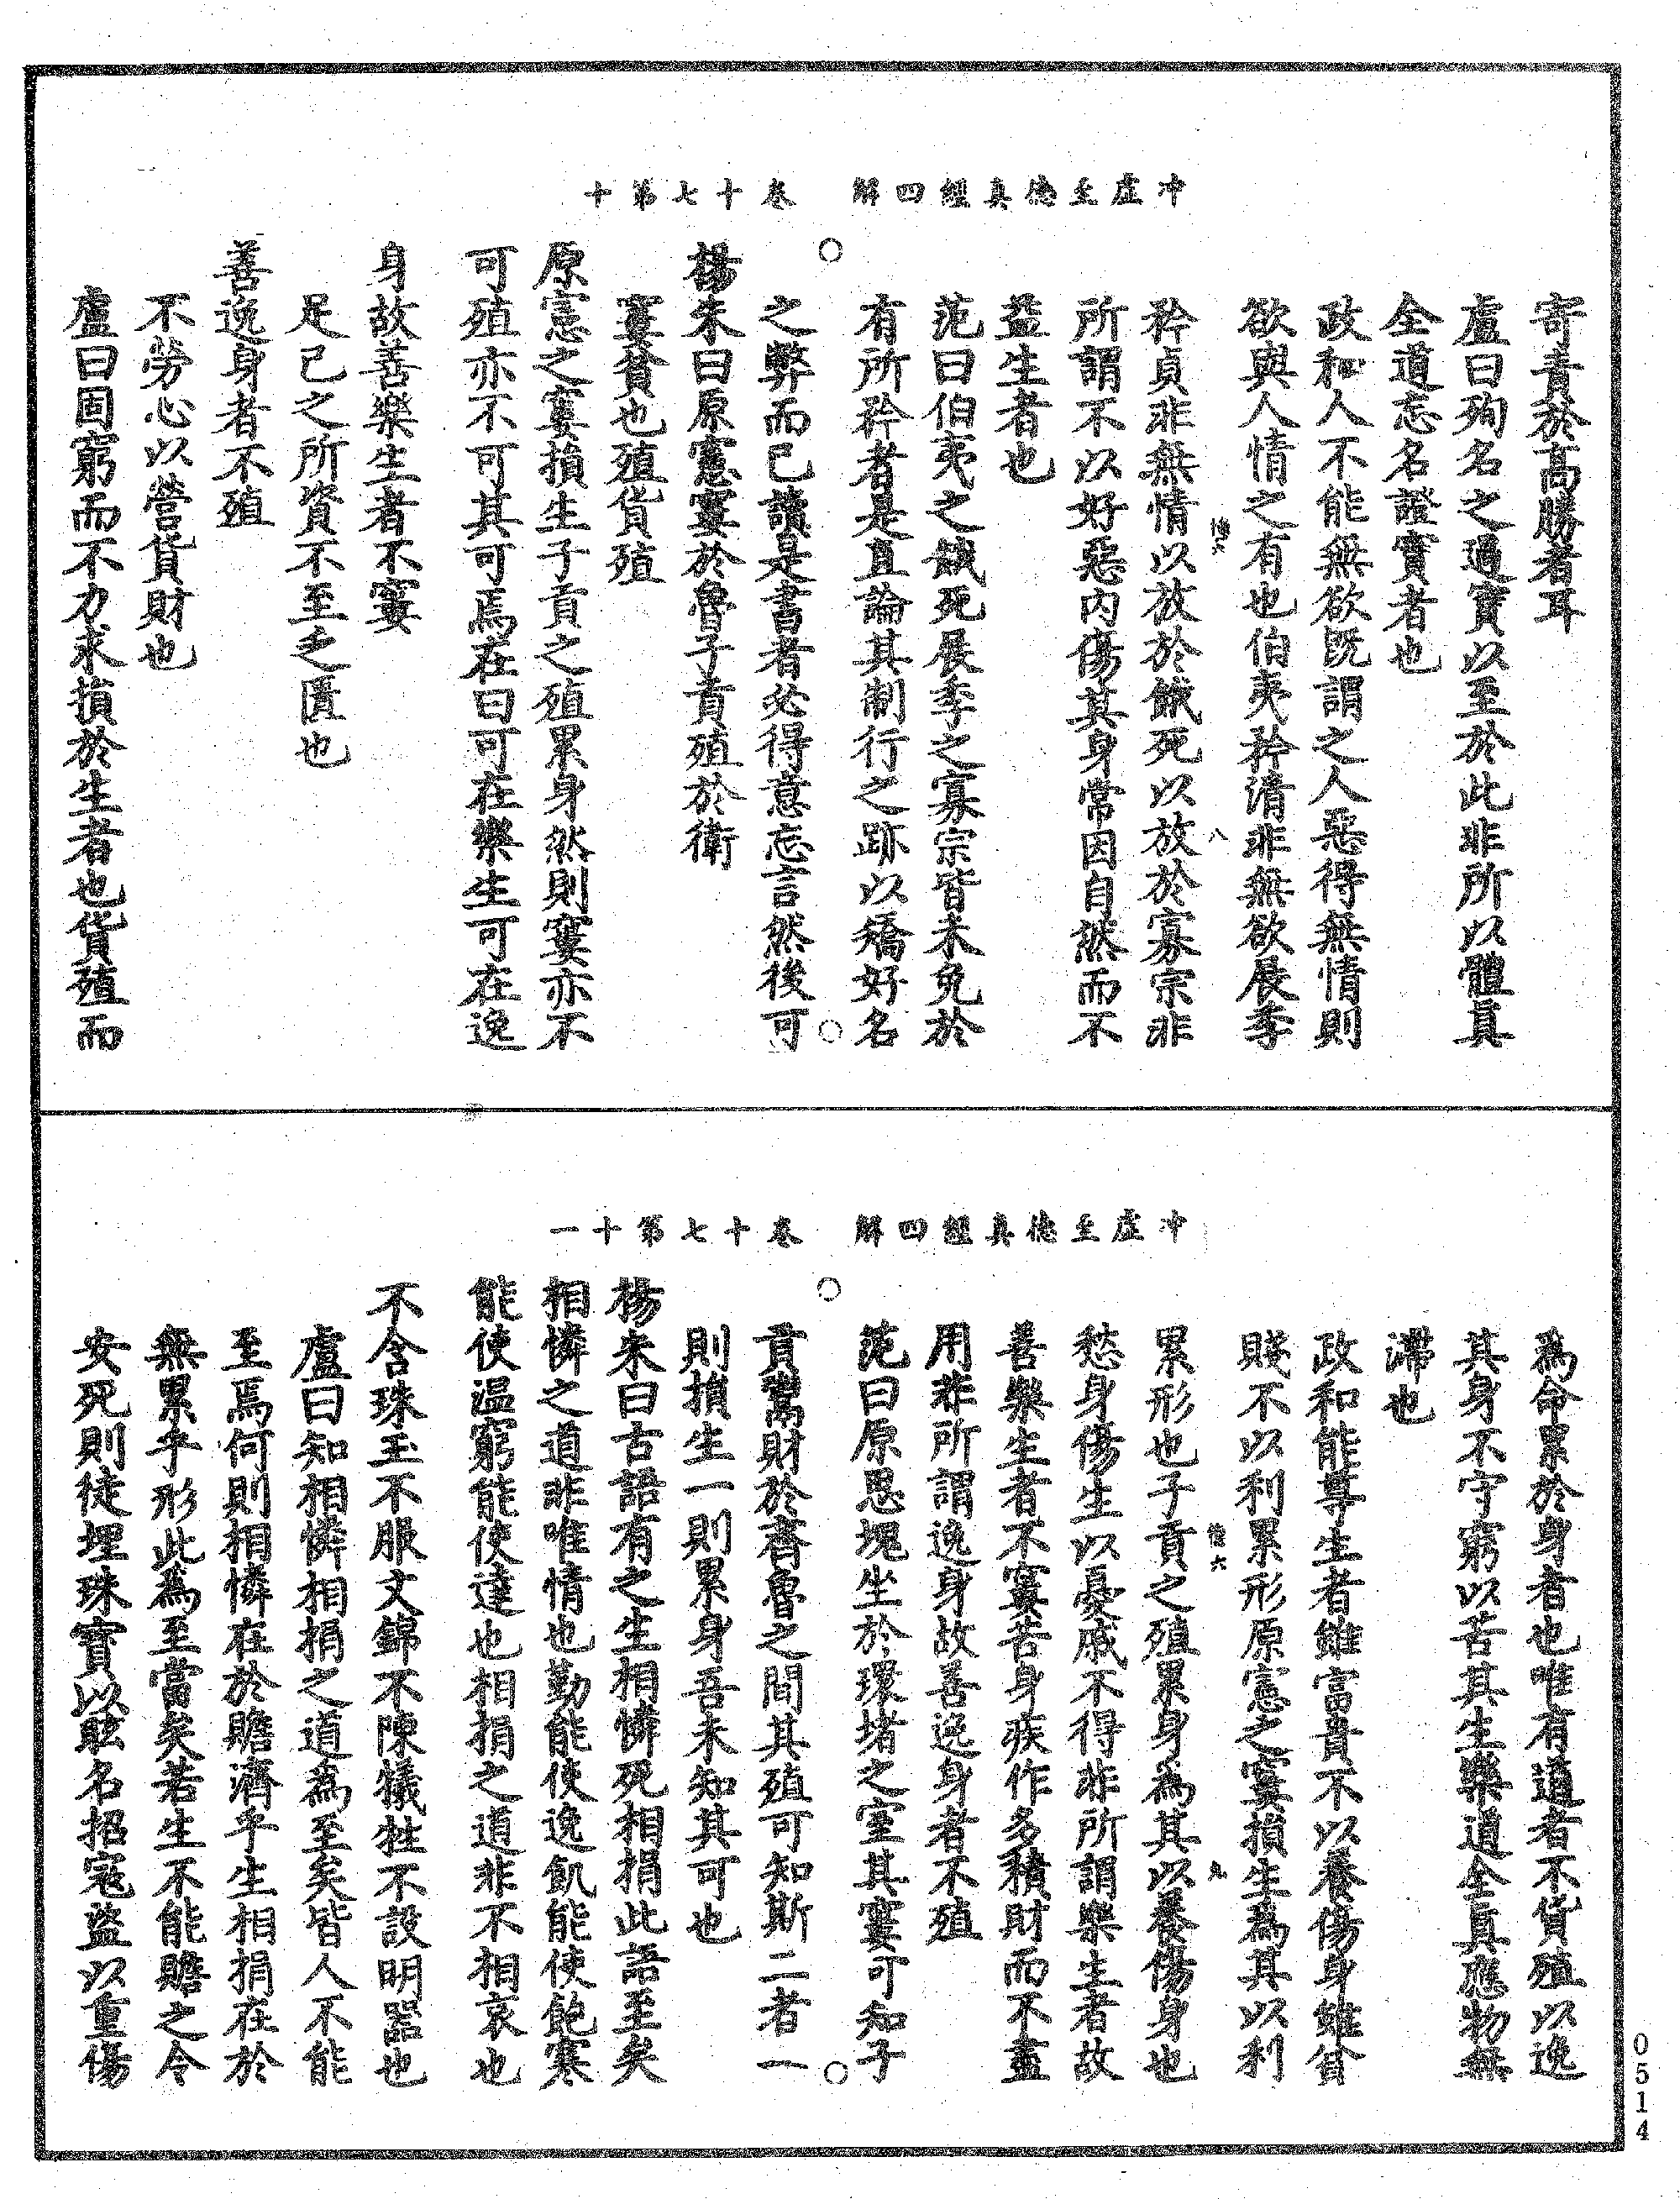 冲虛至德真經四解　卷十七第十
寄責於高勝者耳
盧曰殉名之過實以至於此非所以體真
全道忘名證實者也
政和人不能無欲既謂之人惡得無情則
欲與人情之有也伯夷矜清非無欲展季
矜貞非無情以放於餓死以放於寡宗非
八
所謂不以好惡內傷其身常因自然而不
益生者也
范曰伯夷之餓死展季之寡宗皆未免於
有所矜者是直論其制行之跡以矯好名
之弊而已讀是書者必得意忘言然後可
楊朱曰原憲窶於魯子貢殖於衛
窶貧也殖貨殖
原憲之窶損生子貢之殖累身然則窶亦不
可殖亦不可其可焉在曰可在樂生可在逸
身故善樂生者不窶
足己之所資不至乏匱也
善逸身者不殖
不勞心以營貨財也
盧曰固窮而不力求損於生者也貨殖而
冲虛至德真經四解　卷十七第十一
為命累於身者也唯有道者不貨殖以逸
其身不守窮以苦其生樂道全真應物無
滯也
政和能尊生者雖富貴不以養傷身雖貧
賤不以利累形原憲之窶損生為其以利
累形也子貢之殖累身為其以養傷身也
九
愁身傷生以憂戚不得非所謂樂生者故
善樂生者不窶苦身疾作多積財而不盡
用非所謂逸身故善逸身者不殖
范曰原思塊坐於環堵之室其窶可知子
貢鬻財於齊魯之間其殖可知斯二者一
則損生一則累身吾未知其可也
楊朱曰古語有之生相憐死相捐此語至矣
相憐之道非唯情也勤能使逸飢能使飽寒
能使溫窮能使達也相捐之道非不相哀也
不含珠玉不服文錦不陳犧牲不設明器也
盧曰知相憐相捐之道為至矣皆人不能
至焉何則相憐在於贍濟乎生相捐在於
無累乎形此為至當矣若生不能贍之令
安死則徒埋珠寶以眩名招寇盜以重傷
0514